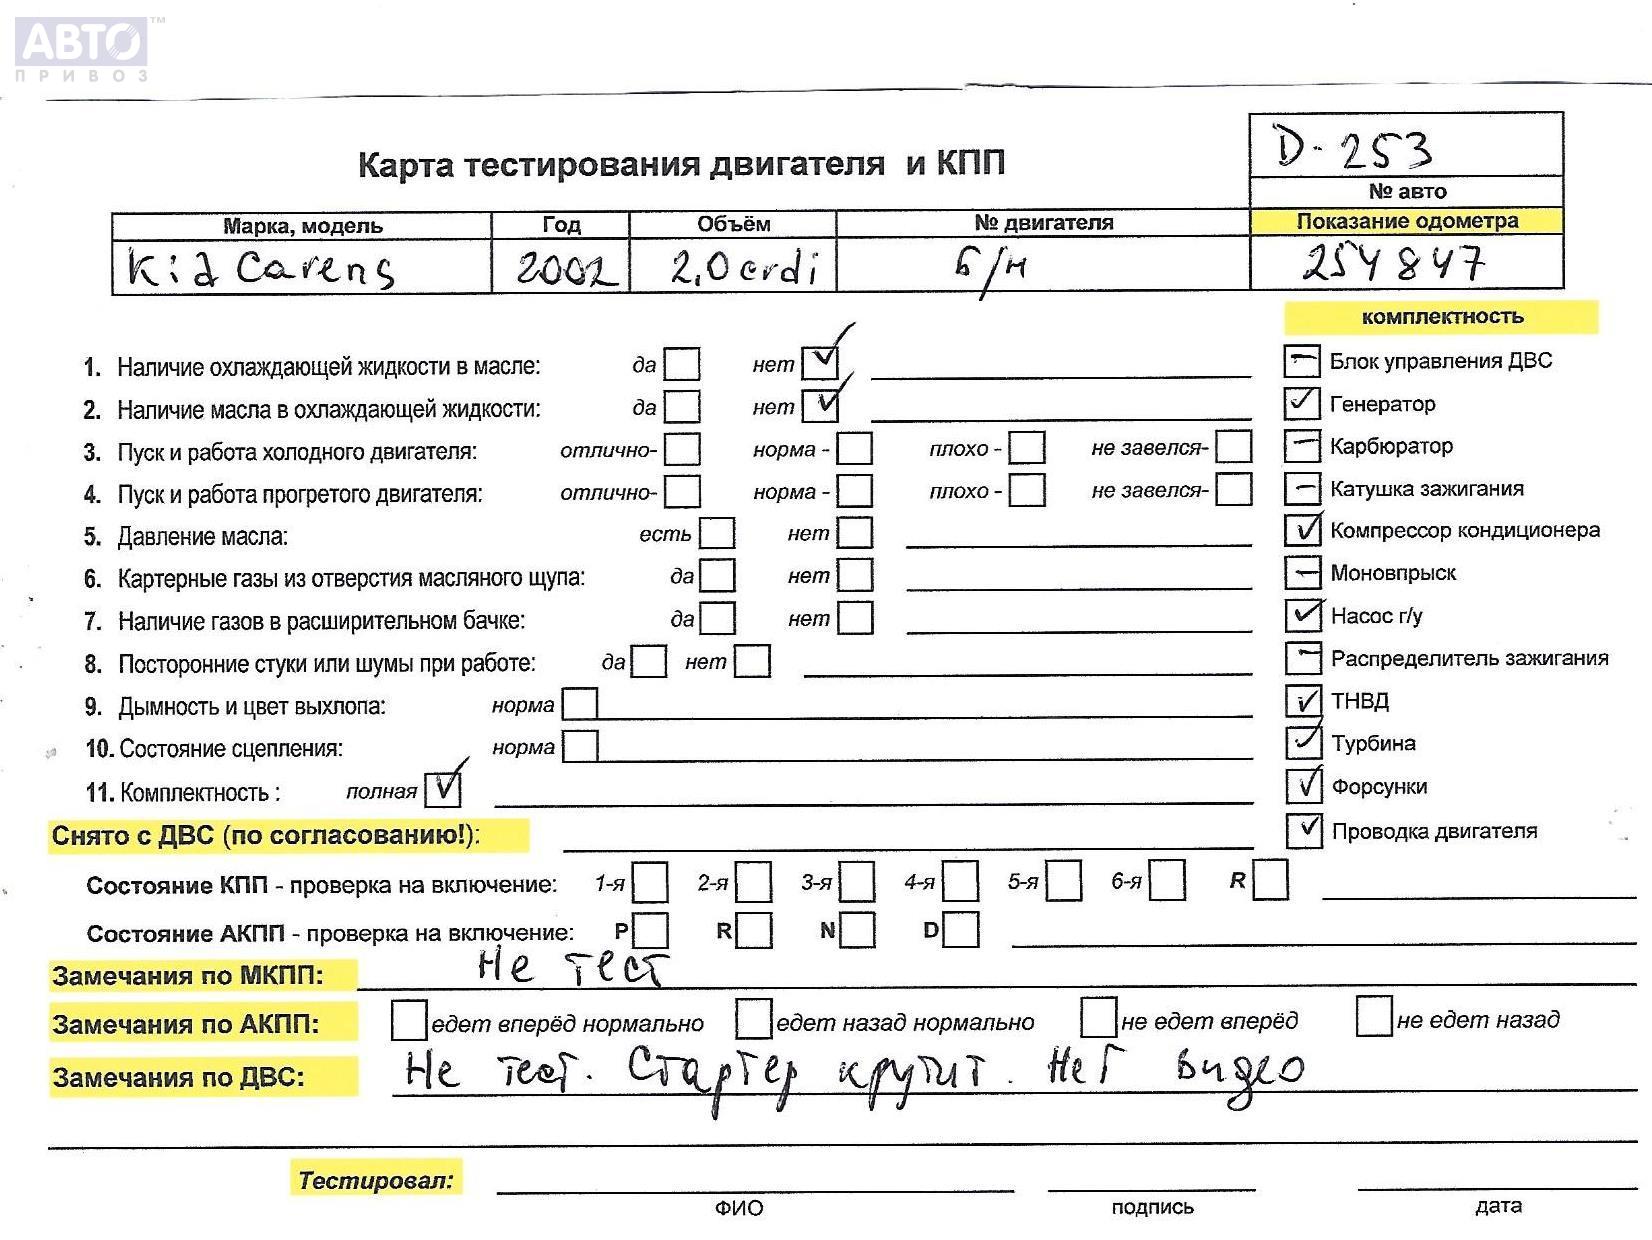 АВТО™
ПРИВОЗ
D-253
Карта тестирования двигателя и КПП
№ авто
Марка, модель Год Объём № двигателя Показание одометра
Kia Carens 2002 2,0 crdi б/н 254847
комплектность
1. Наличие охлаждающей жидкости в масле: да нет ✓ – Блок управления ДВС
2. Наличие масла в охлаждающей жидкости: да нет ✓ ✓ Генератор
3. Пуск и работа холодного двигателя: отлично- норма - плохо - не завелся- – Карбюратор
4. Пуск и работа прогретого двигателя: отлично- норма - плохо - не завелся- – Катушка зажигания
5. Давление масла: есть нет ✓ Компрессор кондиционера
6. Картерные газы из отверстия масляного щупа: да нет – Моновпрыск
7. Наличие газов в расширительном бачке: да нет ✓ Насос г/у
8. Посторонние стуки или шумы при работе: да нет – Распределитель зажигания
9. Дымность и цвет выхлопа: норма ✓ ТНВД
10. Состояние сцепления: норма ✓ Турбина
11. Комплектность : полная ✓ ✓ Форсунки
Снято с ДВС (по согласованию!): ✓ Проводка двигателя
Состояние КПП - проверка на включение: 1-я 2-я 3-я 4-я 5-я 6-я R
Состояние АКПП - проверка на включение: P R N D
Замечания по МКПП: Не тест
Замечания по АКПП: едет вперёд нормально едет назад нормально не едет вперёд не едет назад
Замечания по ДВС: Не тест. Стартер крутит. Нет видео
Тестировал:
ФИО подпись дата